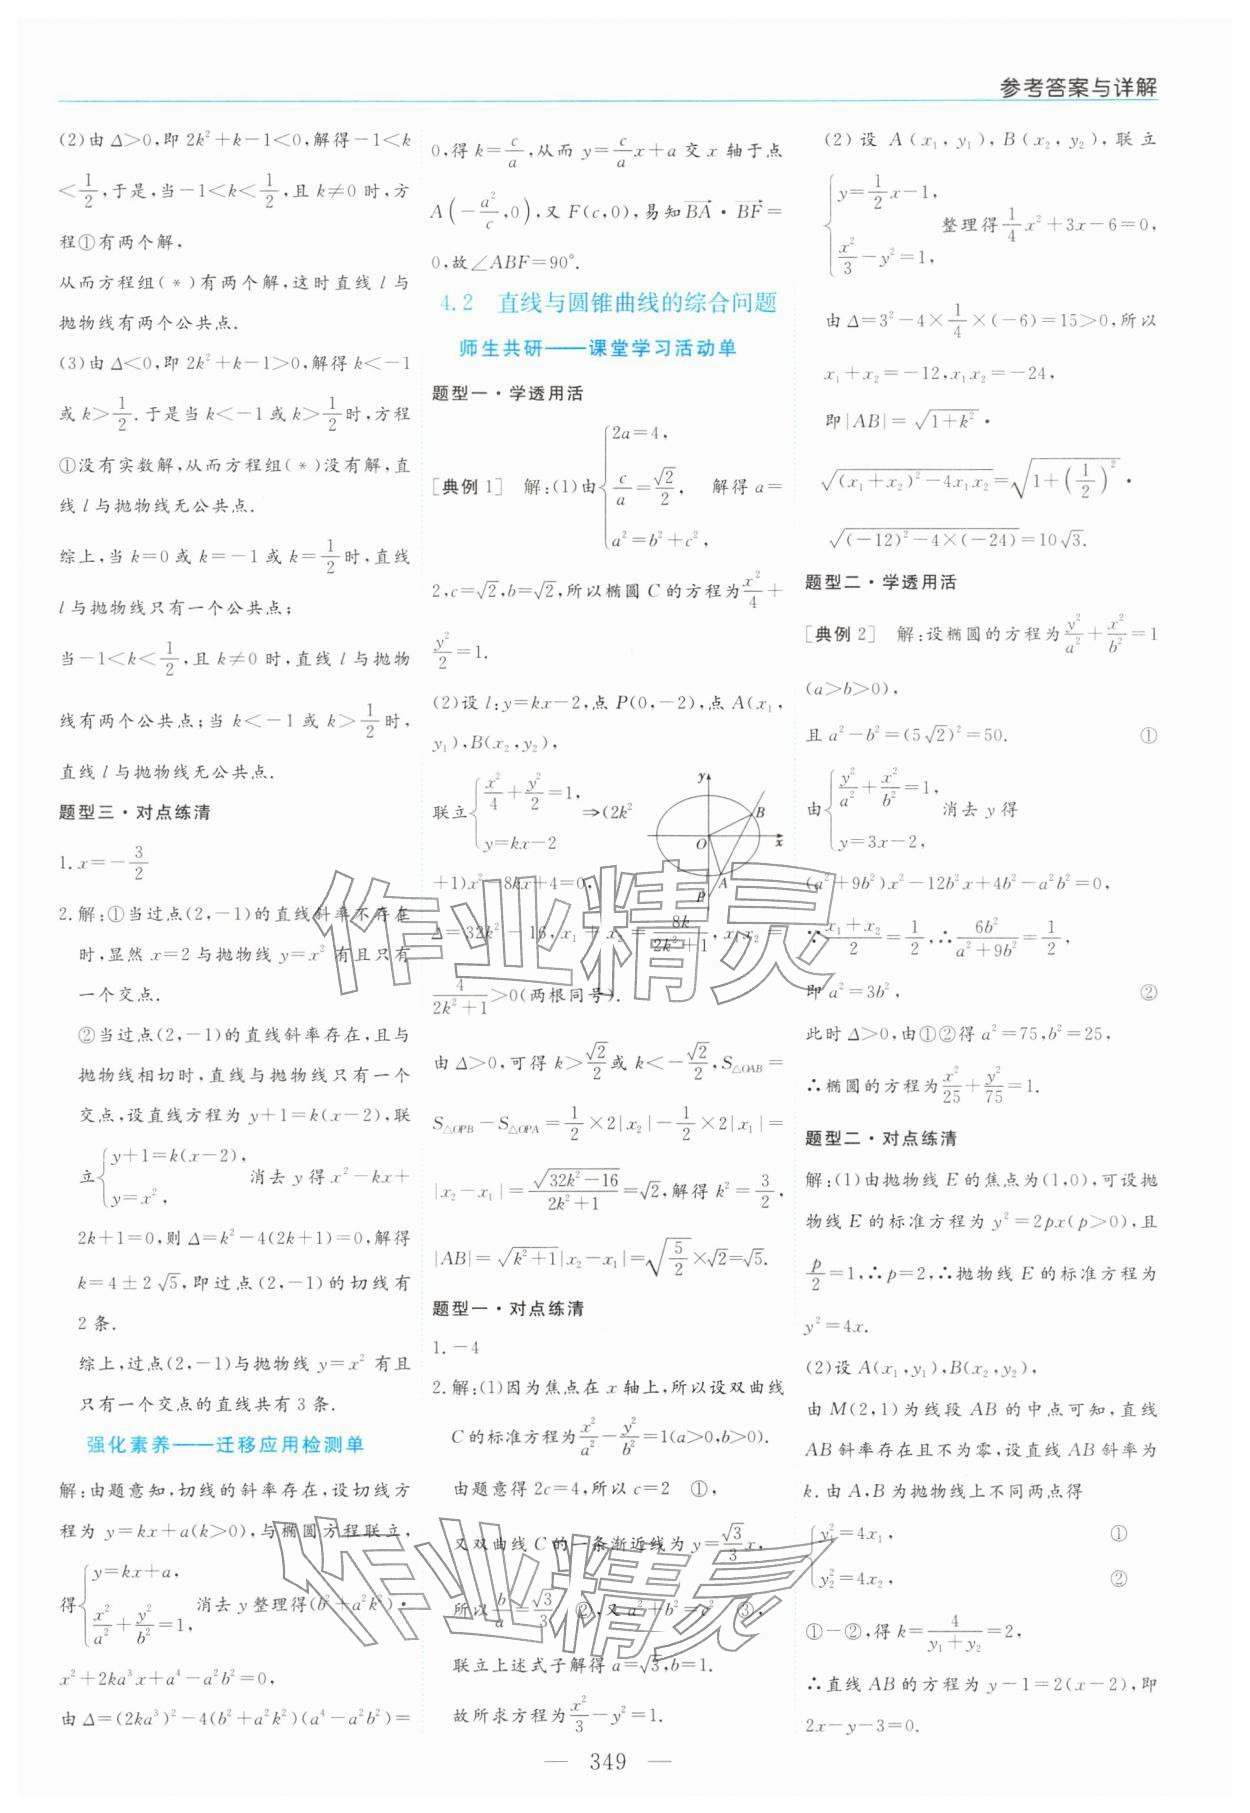 参考答案与详解
(2)由 Δ>0,即 2k²+k-1<0,解得-1<k
<1/2,于是,当-1<k<1/2,且 k≠0 时,方
程①有两个解,
从而方程组(*)有两个解,这时直线 l 与
抛物线有两个公共点.
(3)由 Δ<0,即 2k²+k-1>0,解得 k<-1
或 k>1/2.于是当 k<-1 或 k>1/2时,方程
①没有实数解,从而方程组(*)没有解,直
线 l 与抛物线无公共点.
综上,当 k=0 或 k=-1 或 k=1/2时,直线
l 与抛物线只有一个公共点;
当-1<k<1/2,且 k≠0 时,直线 l 与抛物
线有两个公共点;当 k<-1 或 k>1/2时,
直线 l 与抛物线无公共点.
题型三·对点练清
1.x=-3/2
2.解:①当过点(2,-1)的直线斜率不存在
时,显然 x=2 与抛物线 y=x² 有且只有
一个交点.
②当过点(2,-1)的直线斜率存在,且与
抛物线相切时,直线与抛物线只有一个
交点,设直线方程为 y+1=k(x-2),联
立{y+1=k(x-2), y=x², 消去 y 得 x²-kx+
2k+1=0,则 Δ=k²-4(2k+1)=0,解得
k=4±2√5,即过点(2,-1)的切线有
2 条.
综上,过点(2,-1)与抛物线 y=x² 有且
只有一个交点的直线共有 3 条.
强化素养——迁移应用检测单
解:由题意知,切线的斜率存在,设切线方
程为 y=kx+a(k>0),与椭圆方程联立,
得{y=kx+a, x²/a²+y²/b²=1, 消去 y 整理得(b²+a²k²)·
x²+2ka³x+a⁴-a²b²=0,
由 Δ=(2ka³)²-4(b²+a²k²)(a⁴-a²b²)=
0,得 k=c/a,从而 y=c/a x+a 交 x 轴于点
A(-a²/c,0),又 F(c,0),易知BA·BF=
0,故∠ABF=90°.
4.2 直线与圆锥曲线的综合问题
师生共研——课堂学习活动单
题型一·学透用活
[典例 1] 解:(1)由{2a=4, c/a=√2/2, a²=b²+c², 解得 a=
2,c=√2,b=√2,所以椭圆 C 的方程为x²/4+
y²/2=1.
(2)设 l:y=kx-2,点 P(0,-2),点 A(x₁,
y₁),B(x₂,y₂),
联立{x²/4+y²/2=1, y=kx-2 ⇒(2k²
y B O x A P
+1)x²-8kx+4=0,
Δ=32k²-16,x₁+x₂=8k/(2k²+1),x₁x₂=
4/(2k²+1)>0(两根同号).
由 Δ>0,可得 k>√2/2或 k<-√2/2,S△OAB=
S△OPB-S△OPA=1/2×2|x₂|-1/2×2|x₁|=
|x₂-x₁|=√(32k²-16)/(2k²+1)=√2,解得 k²=3/2,
|AB|=√(k²+1)|x₂-x₁|=√(5/2)×√2=√5.
题型一·对点练清
1.-4
2.解:(1)因为焦点在 x 轴上,所以设双曲线
C 的标准方程为x²/a²-y²/b²=1(a>0,b>0).
由题意得 2c=4,所以 c=2 ①,
又双曲线 C 的一条渐近线为 y=√3/3 x,
所以b/a=√3/3 ②,又 a²+b²=c² ③,
联立上述式子解得 a=√3,b=1.
故所求方程为x²/3-y²=1.
(2)设 A(x₁,y₁),B(x₂,y₂),联立
{y=1/2 x-1, x²/3-y²=1, 整理得1/4 x²+3x-6=0,
由 Δ=3²-4×1/4×(-6)=15>0,所以
x₁+x₂=-12,x₁x₂=-24,
即|AB|=√(1+k²)·
√((x₁+x₂)²-4x₁x₂)=√(1+(1/2)²)·
√((-12)²-4×(-24))=10√3.
题型二·学透用活
[典例 2] 解:设椭圆的方程为y²/a²+x²/b²=1
(a>b>0),
且 a²-b²=(5√2)²=50. ①
由{y²/a²+x²/b²=1, y=3x-2, 消去 y 得
(a²+9b²)x²-12b²x+4b²-a²b²=0,
∵(x₁+x₂)/2=1/2,∴6b²/(a²+9b²)=1/2,
即 a²=3b², ②
此时 Δ>0,由①②得 a²=75,b²=25,
∴椭圆的方程为x²/25+y²/75=1.
题型二·对点练清
解:(1)由抛物线 E 的焦点为(1,0),可设抛
物线 E 的标准方程为 y²=2px(p>0),且
p/2=1,∴p=2,∴抛物线 E 的标准方程为
y²=4x.
(2)设 A(x₁,y₁),B(x₂,y₂),
由 M(2,1)为线段 AB 的中点可知,直线
AB 斜率存在且不为零,设直线 AB 斜率为
k.由 A,B 为抛物线上不同两点得
{y₁²=4x₁, ①
y₂²=4x₂, ②
①-②,得 k=4/(y₁+y₂)=2,
∴直线 AB 的方程为 y-1=2(x-2),即
2x-y-3=0.
作业精灵
作业精灵
— 349 —